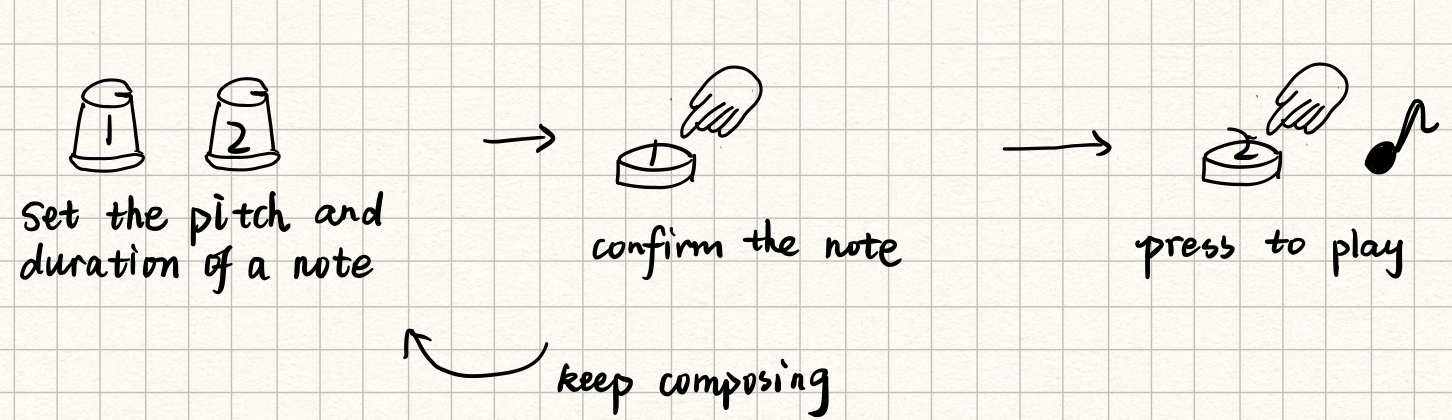 1
2
1
2
Set the pitch and
duration of a note
confirm the note
press to play
keep composing